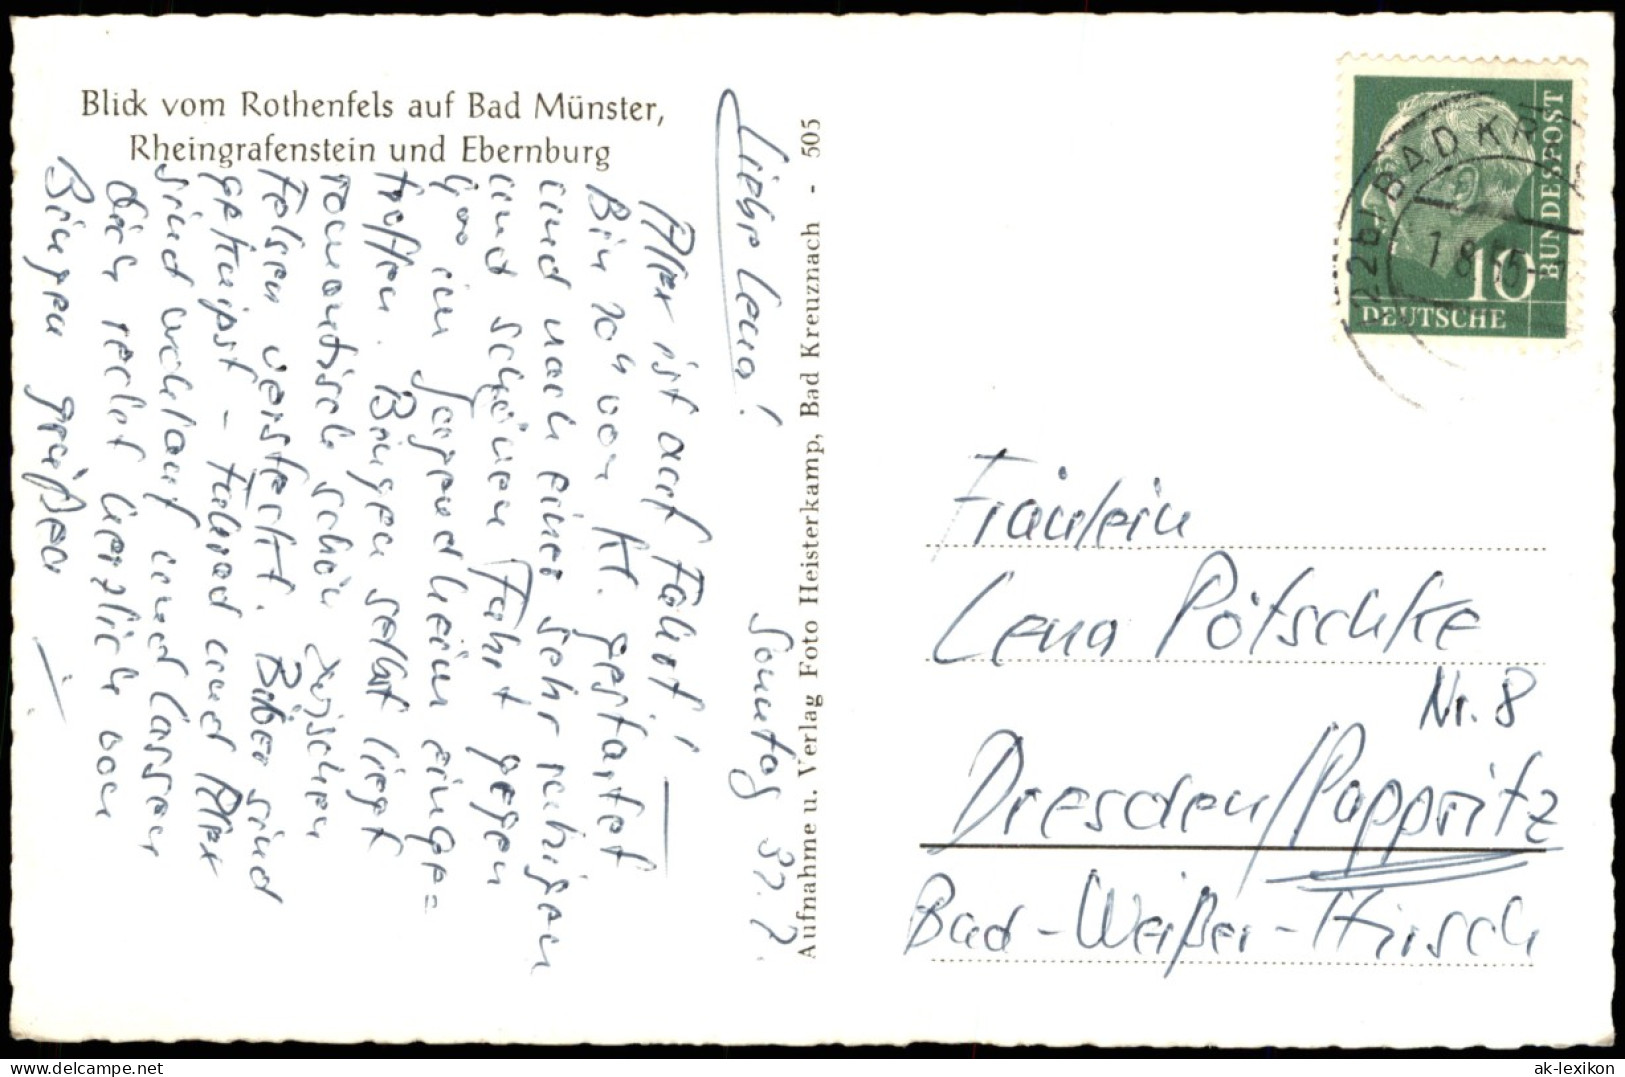 Blick vom Rothenfels auf Bad Münster,
Rheingrafenstein und Ebernburg
Aufnahme u. Verlag Foto Heisterkamp, Bad Kreuznach - 505
Sonntag 31.7.
Liebe Lena!
Alex ist auf Fahrt!
Bin 10h von Kr. gestartet
und nach einer sehr ruhigen
und schönen Fahrt gegen
in Jugendheim einge=
troffen. Bingen selbst liegt
romantisch schön zwischen
Felsen versteckt. Biber sind
getauft - Fahrad und Alex
sind wohlauf und lassen
dich recht herzlich von
Bingen grüßen
DEUTSCHE
BUNDESPOST
10
(22b) BAD KR
1.8.55
Fräulein
Lena Pötschke
Nr. 8
Dresden/Pappritz
Bad-Weißer-Hirsch
ak-lexikon